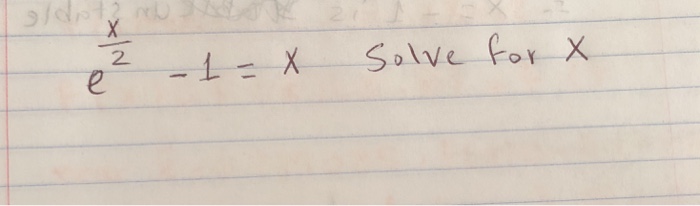 e^{x/2} - 1 = x Solve for x